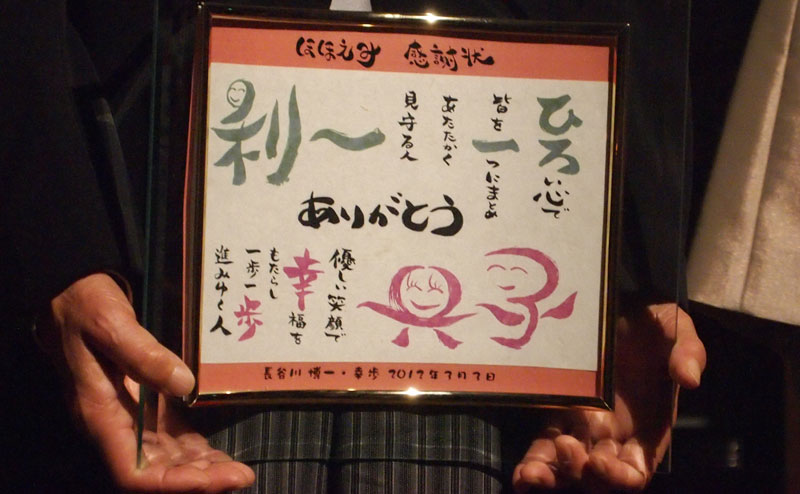 ほほえみ 感謝状
ひろい心で
皆を一つにまとめ
あたたかく
見守る人
利一
ありがとう
典子
優しい笑顔で
幸福を
もたらし
一歩一歩
進みゆく人
長谷川 博一・幸歩 2012年7月7日